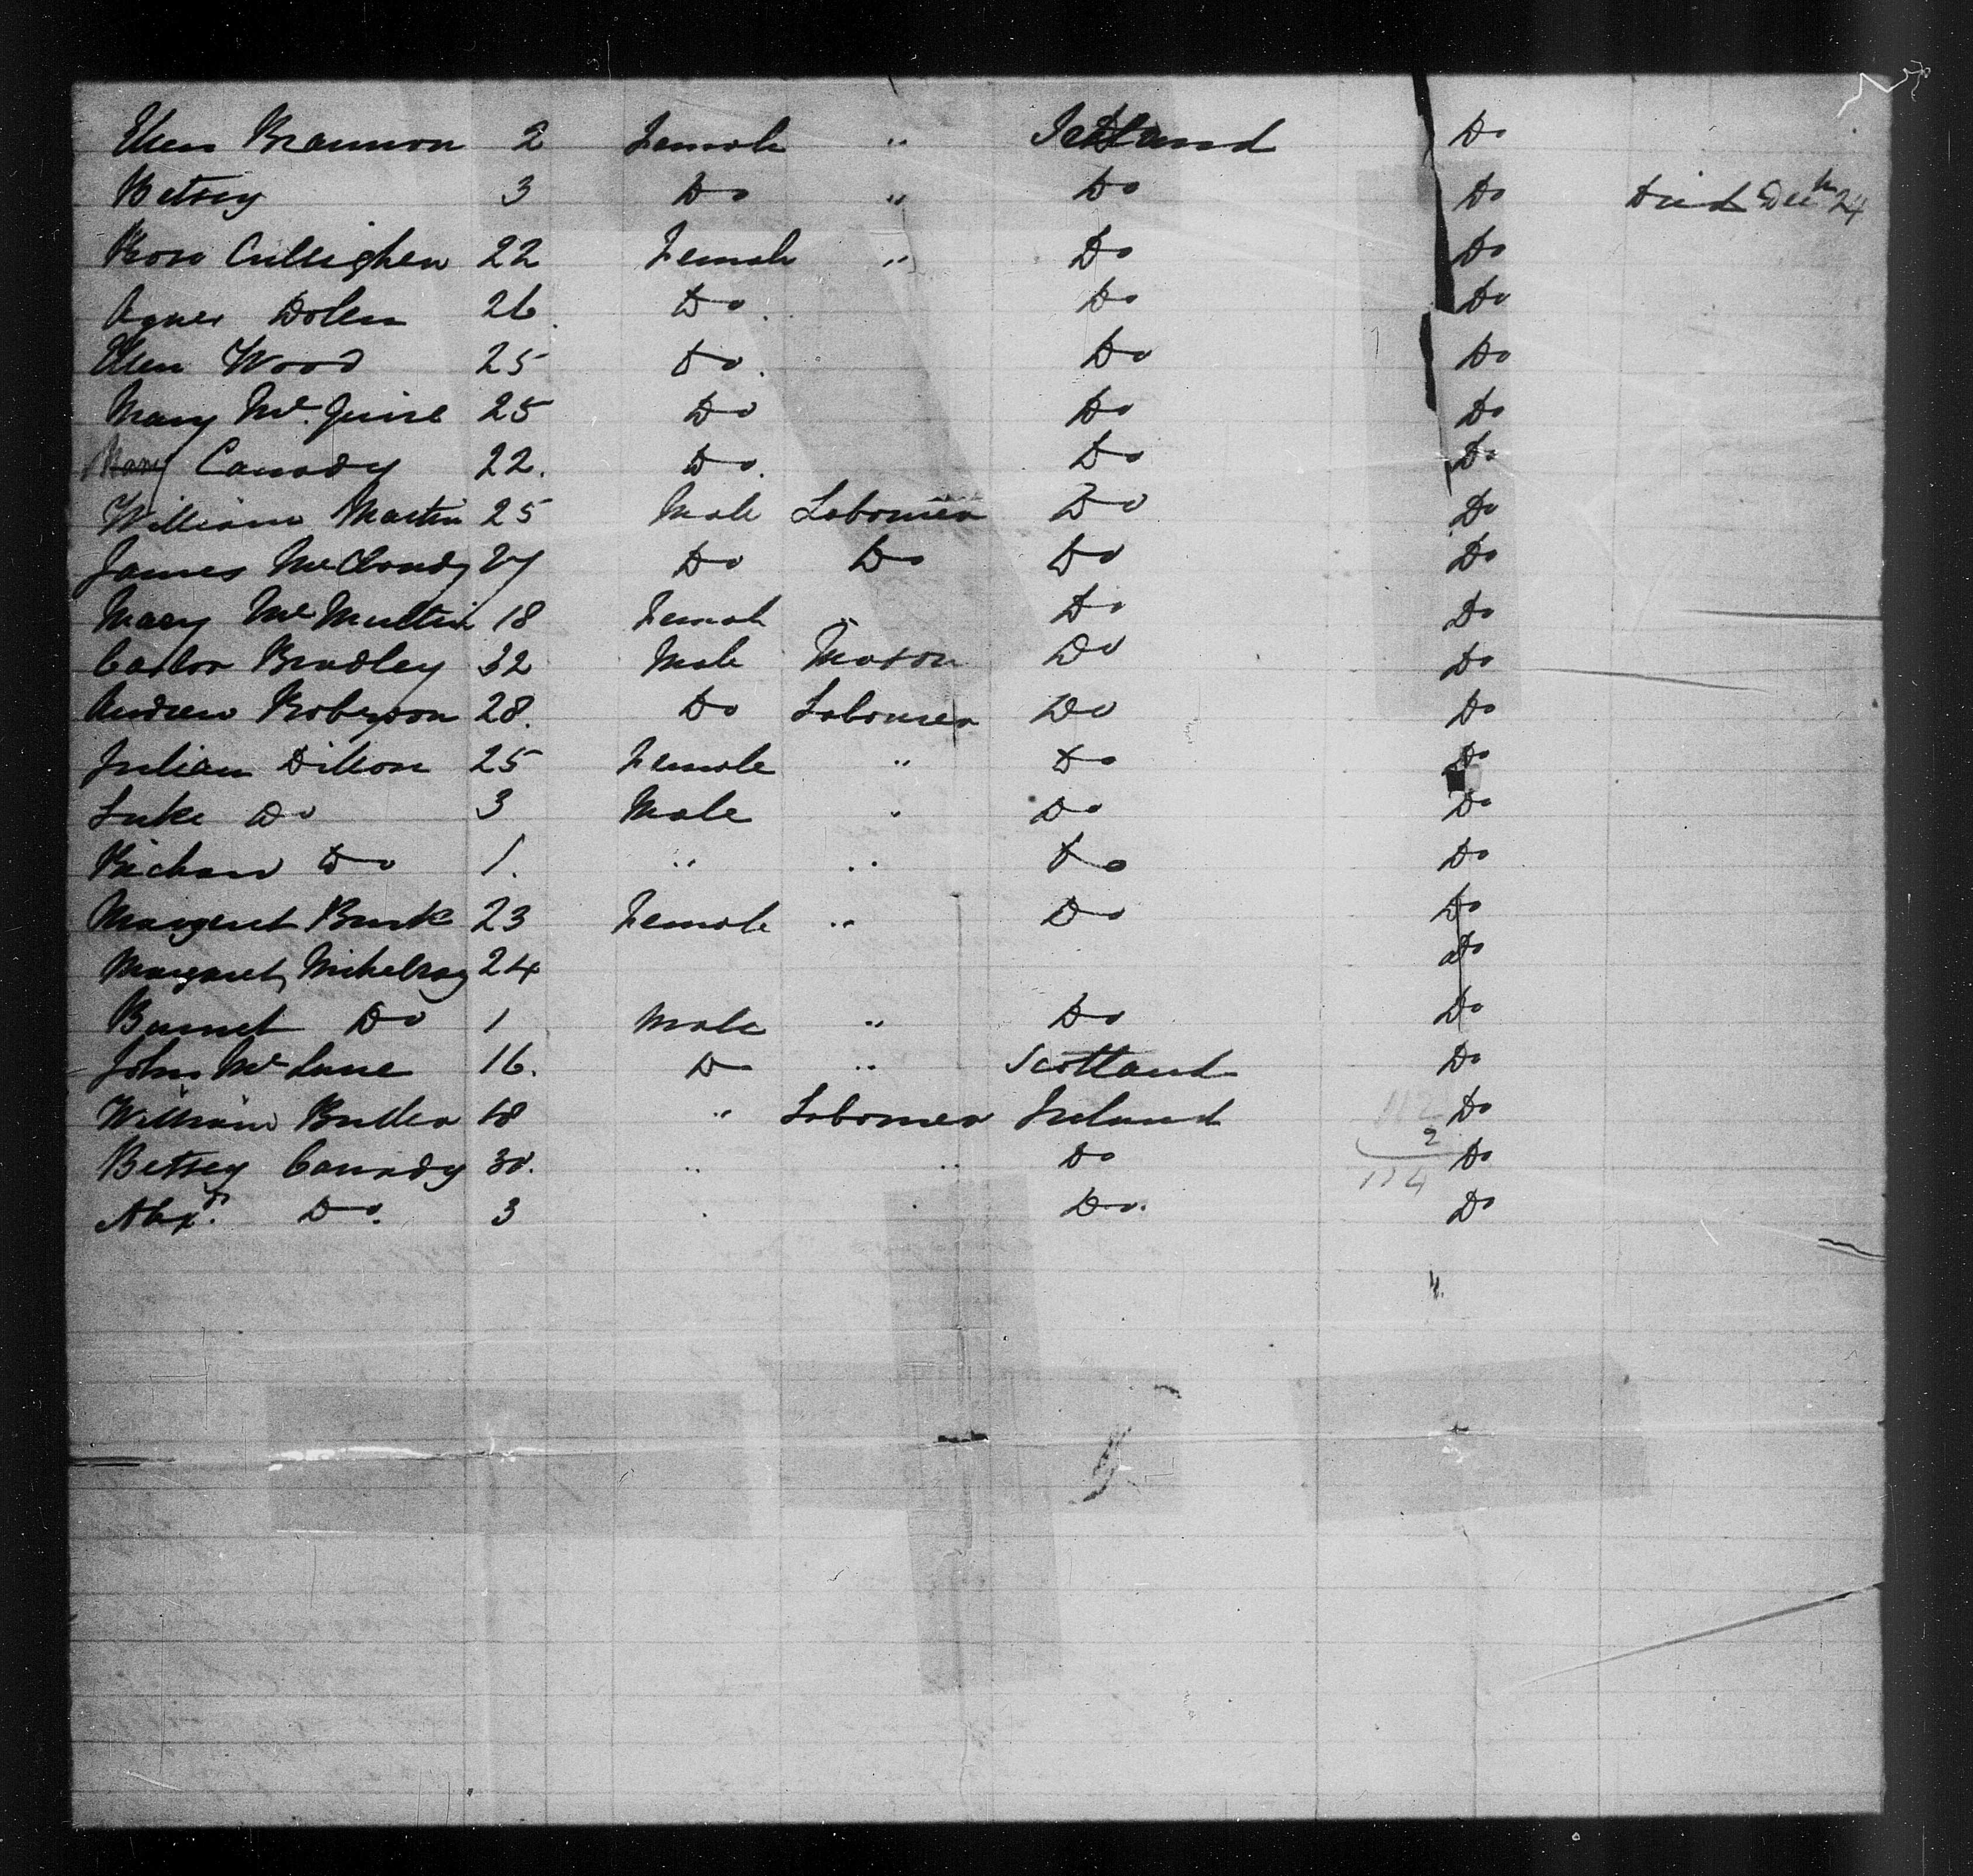 Ellen Brannon 2 Female " Do
Betsey 3 Do " Do Do Died Dec 24
Rose Cullighen 22 Female " Do Do
Agnes Dolen 26. Do. Do Do
Ellen Wood 25 Do. Do Do
Mary Mc Guire 25 Do Do Do
Mary Canady 22. Do. Do Do
William Martin 25 Male Labourer Do Do
James McCloudy 27 Do Do Do Do
Mary Mc Mullin 18 Female Do Do
Bradley 32 Male Mason Do Do
Andrew Roberson 28. Do Labourer Do Do
Julian Dillon 25 Female " Do Do
Luke Do 3 Male " Do Do
Richard Do 1. " " Do Do
Margaret Burk 23 Female " Do Do
Margaret 24 Do
Do 1 Male " Do Do
John Mc Lane 16. Do " Scotland Do
William Butler 18 " Labourer Ireland 112 Do
Betsey Canady 30. " " Do 2 Do
Alexr. Do. 3 " " Do. 114 Do
4.